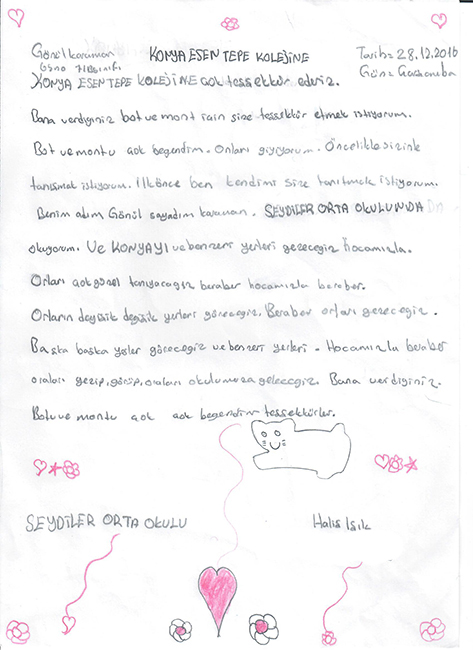 Gönül karaman KONYA ESEN TEPE KOLEJİNE Tarih: 28.12.2016
Gün: Çarşamba
KONYA ESEN TEPE KOLEJİNE çok teşsekkür ederiz.
Bana verdiginiz bot ve mont için size teşsekkür etmek istiyorum.
Bot ve montu çok begendim. Onları giyiyorum. Öncelikle sizinle
tanışmak istiyorum. İlk önce ben kendimi size tanıtmak istiyorum.
Benim adım Gönül soyadım karaman. SEYDİLER ORTA OKULUNDA
okuyorum. Ve KONYAYI ve benzeri yerleri gezecegiz hocamızla.
Onları çok güzel tanıyacagız beraber hocamızla beraber.
Onların degişik degişik yerleri görecegiz. Beraber onları gezecegiz.
Başka başka yerler görecegiz ve benzeri yerleri. Hocamızla beraber
oraları gezip, görüp, oraları okulumuza gelecegiz. Bana verdiginiz.
Botu ve montu çok çok begendim teşsekkürler.
SEYDİLER ORTA OKULU Halis Işık